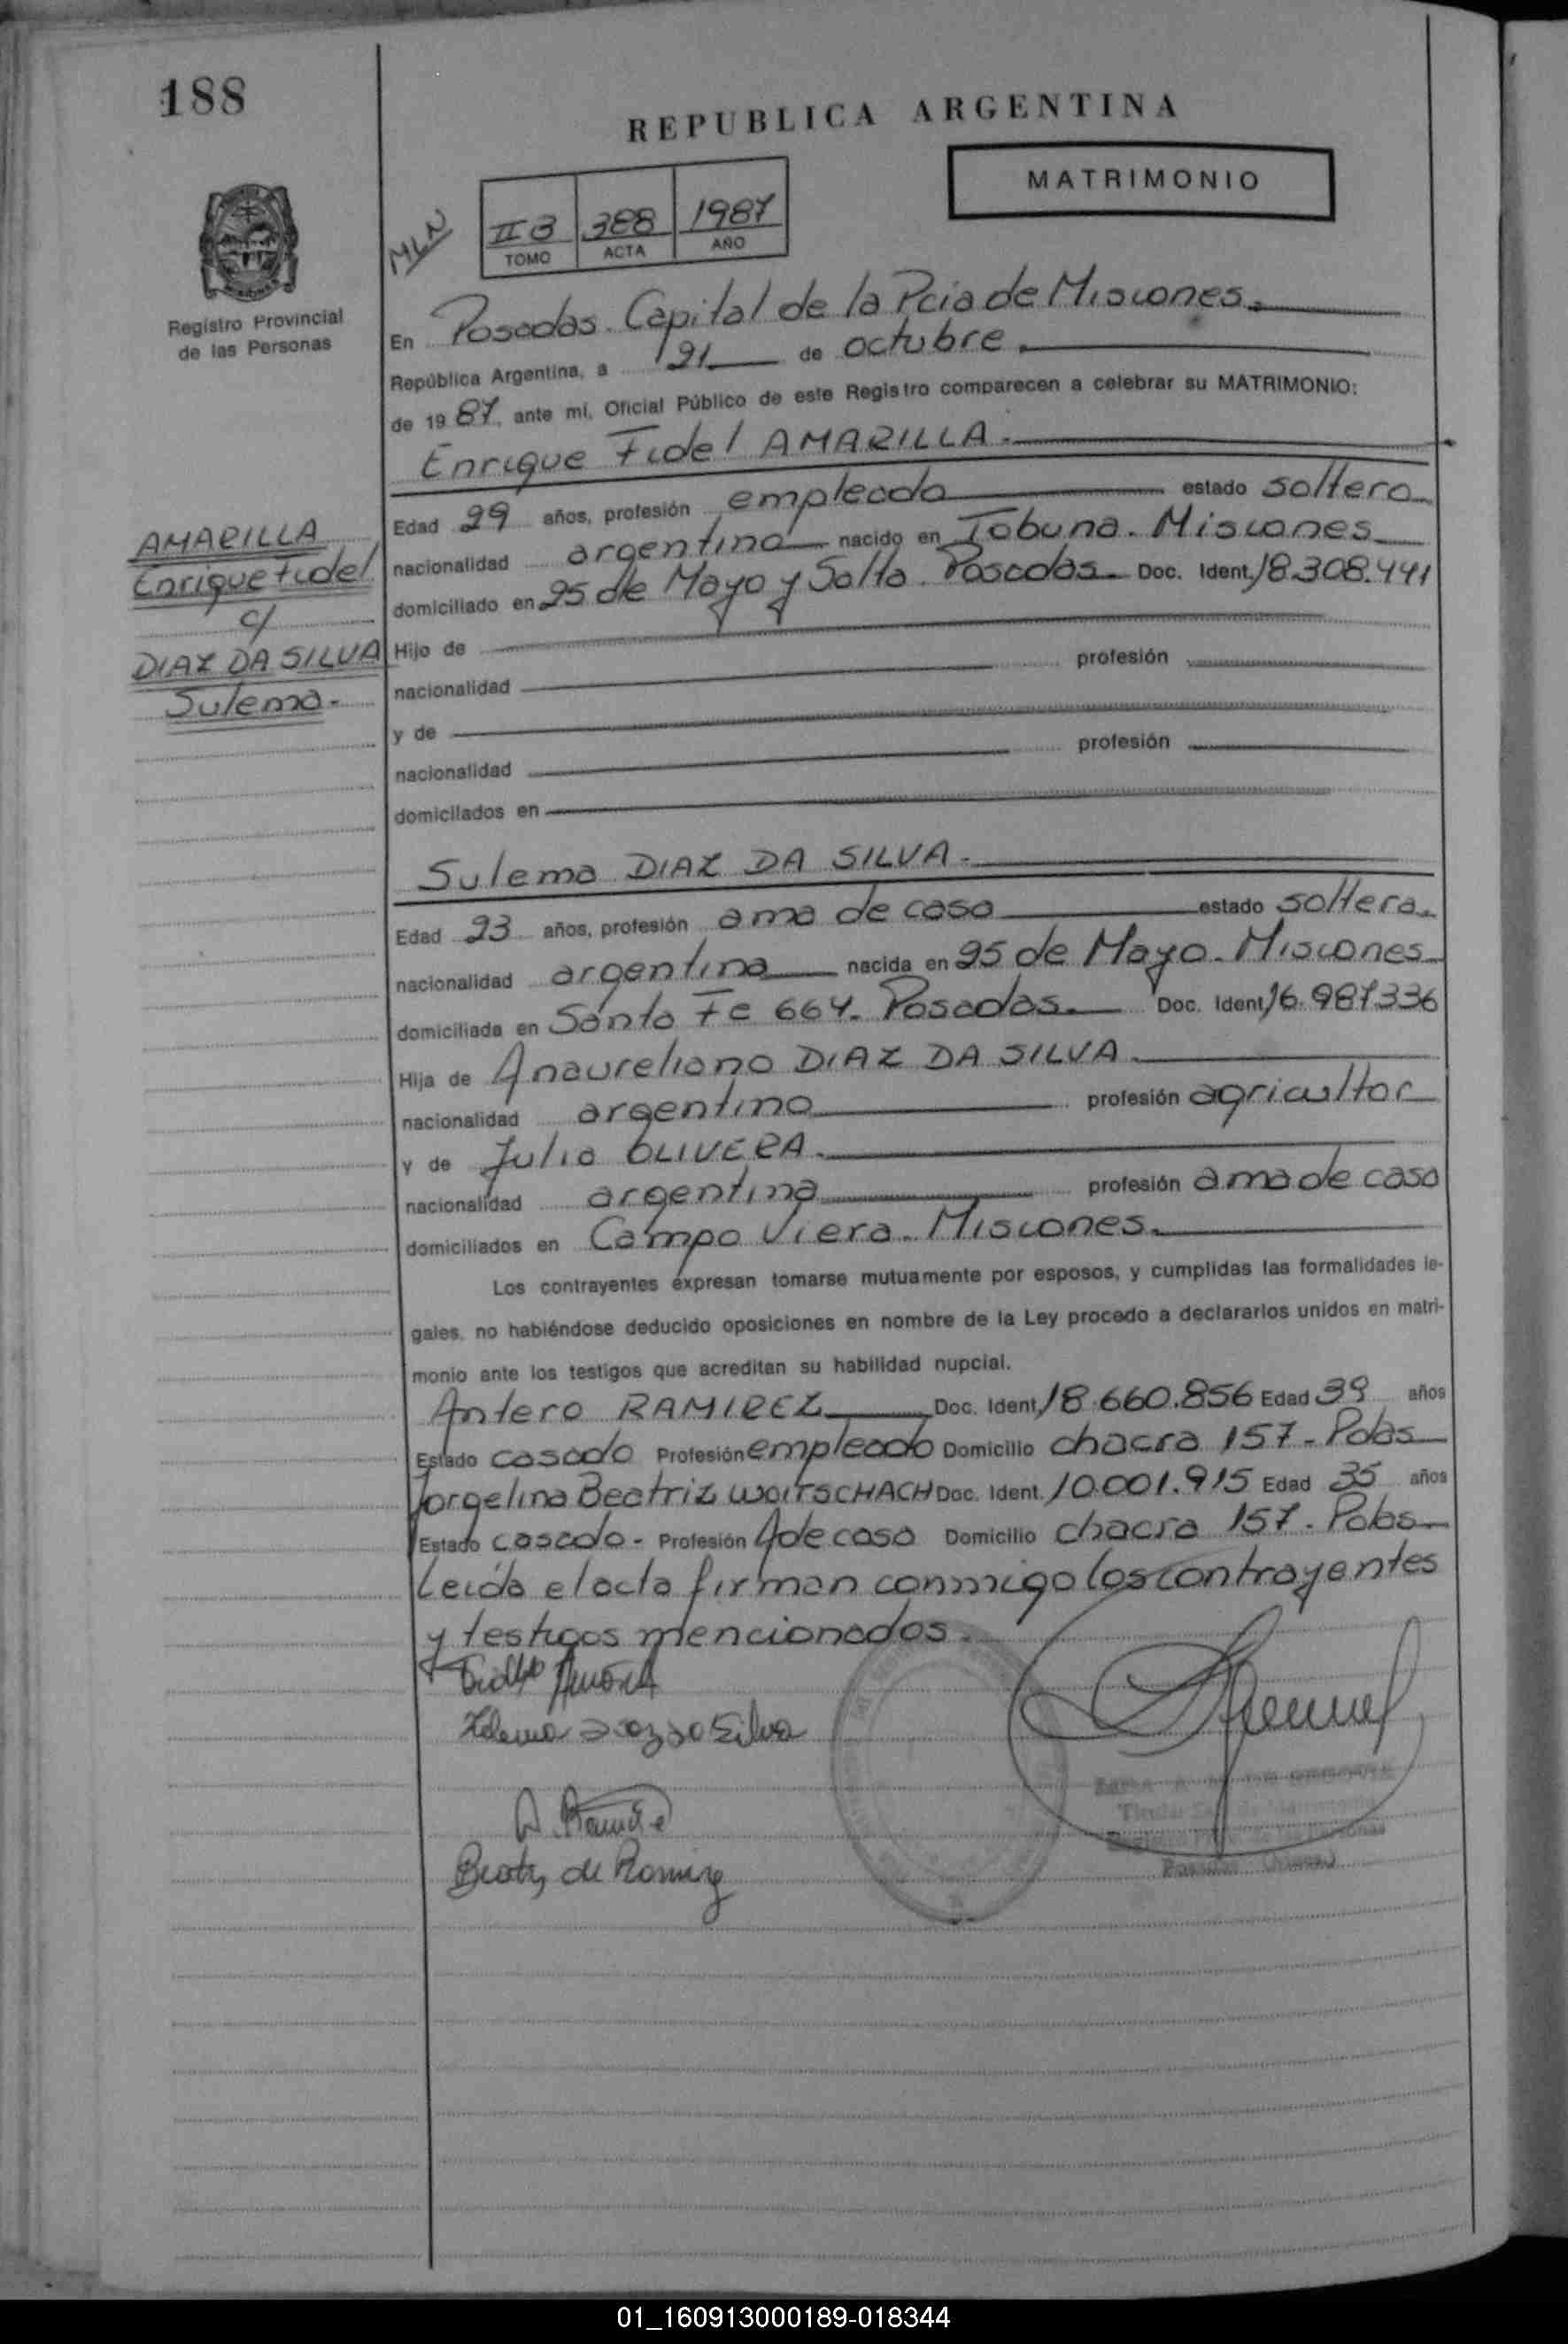 188
REPUBLICA ARGENTINA
MATRIMONIO
MLN
II B 388 1987
TOMO ACTA AÑO
Registro Provincial
de las Personas
En Posadas. Capital de la Pcia de Misiones.
República Argentina, a 21 de octubre.
de 1987, ante mí, Oficial Público de este Registro comparecen a celebrar su MATRIMONIO:
Enrique Fidel AMARILLA.
Edad 29 años, profesión empleado estado soltero
nacionalidad argentino nacido en Tobuna. Misiones
domiciliado en 25 de Mayo y Salta. Posadas. Doc. Ident. 18.308.441
Hijo de
nacionalidad profesión
y de
nacionalidad profesión
domicilados en
AMARILLA
Enrique Fidel
c/
DIAZ DA SILVA
Sulema.
Sulema DIAZ DA SILVA.
Edad 23 años, profesión ama de casa estado soltera.
nacionalidad argentina nacida en 25 de Mayo. Misiones
domiciliada en Santa Fe 664. Posadas. Doc. Ident. 16.987.336
Hija de Anaureliano DIAZ DA SILVA.
nacionalidad argentino profesión agricultor
y de Julia OLIVERA.
nacionalidad argentina profesión ama de casa
domiciliados en Campo Viera. Misiones.
Los contrayentes expresan tomarse mutuamente por esposos, y cumplidas las formalidades le-
gales, no habiéndose deducido oposiciones en nombre de la Ley procedo a declararlos unidos en matri-
monio ante los testigos que acreditan su habilidad nupcial.
Antero RAMIREZ Doc. Ident. 18.660.856 Edad 39 años
Estado casado Profesión empleado Domicilio chacra 157. Pdas
Jorgelina Beatriz WOITSCHACH Doc. Ident. 10.001.915 Edad 35 años
Estado casada. Profesión A de casa Domicilio chacra 157. Pdas
Leída el acta firman conmigo los contrayentes
y testigos mencionados.
Beatriz de Ramirez
01_160913000189-018344